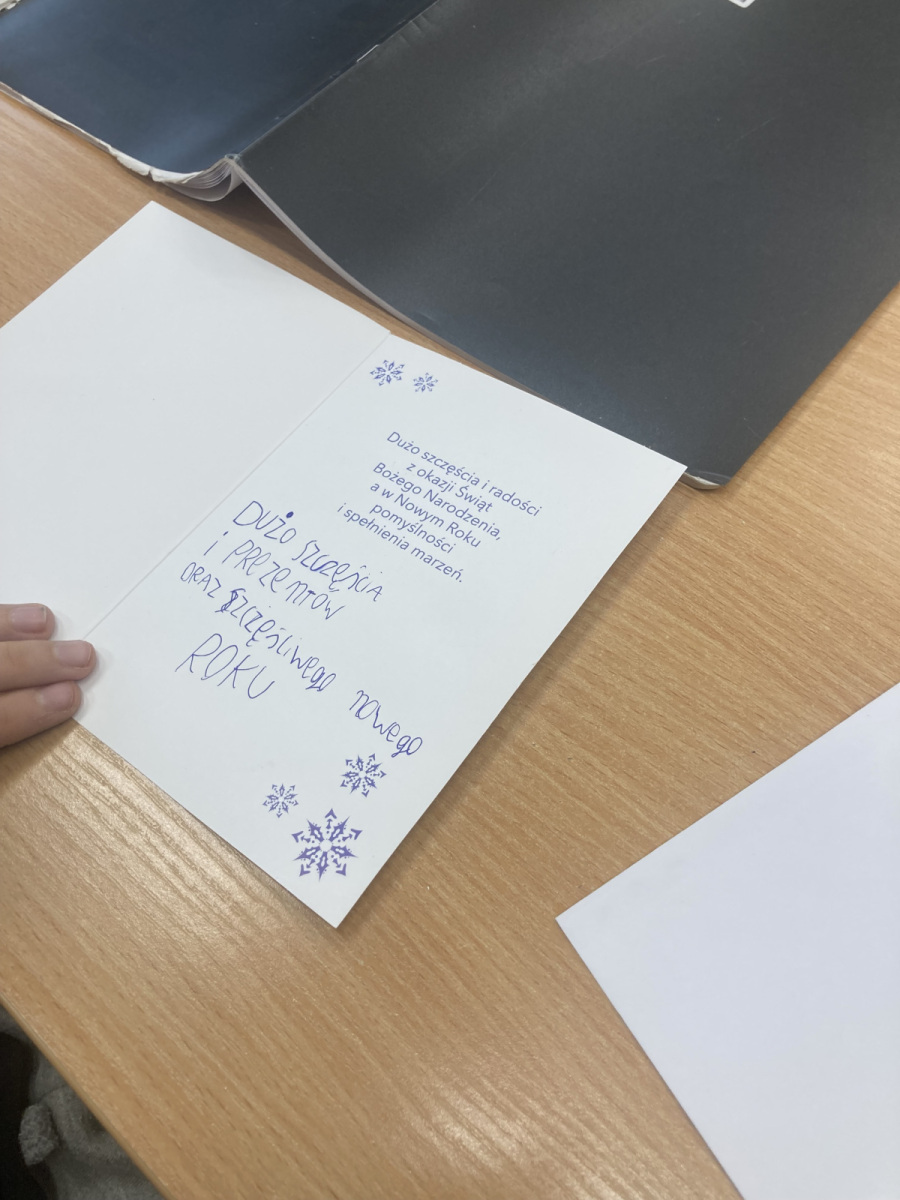 Dużo szczęścia i radości
z okazji Świąt
Bożego Narodzenia,
a w Nowym Roku
pomyślności
i spełnienia marzeń.
DUŻO SZCZĘŚCIA
i PREZENTÓW
ORAZ SZCZĘŚliwego nowego
ROKU